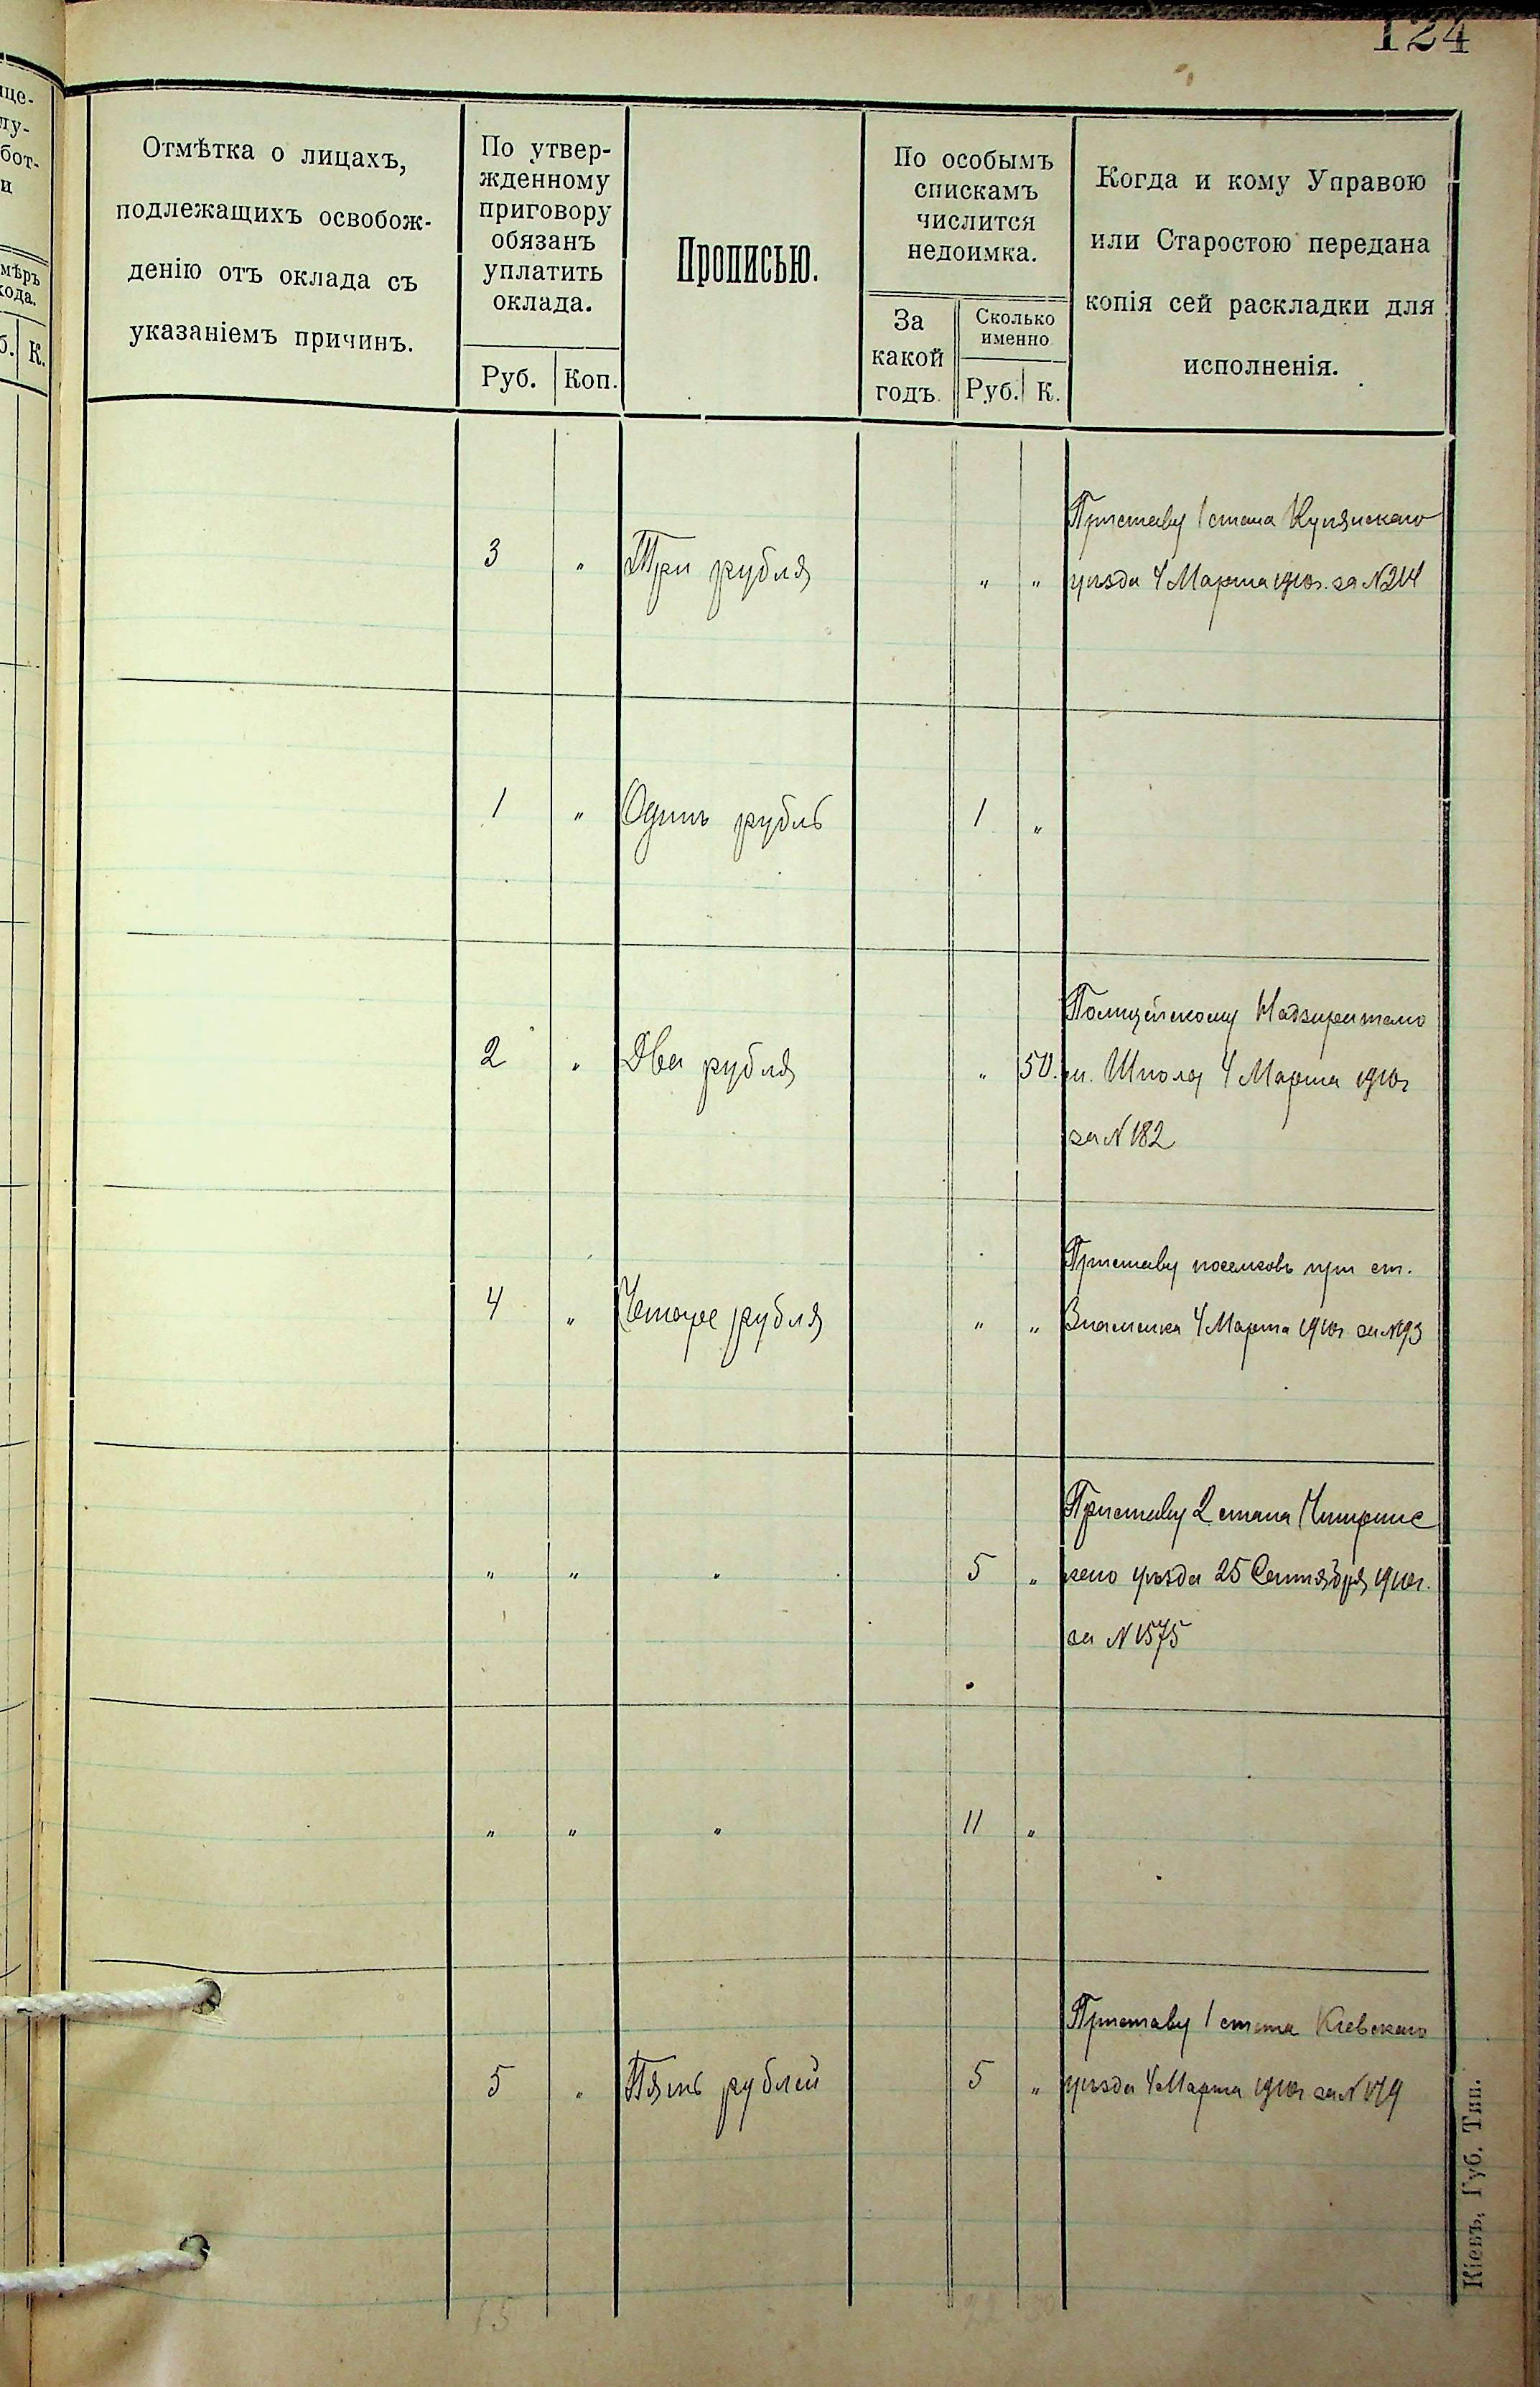 124
ице-
лу-
бот-
и
мѣръ
хода.
б. К.
Отмѣтка о лицахъ,
подлежащихъ освобож-
денію отъ оклада съ
указаніемъ причинъ.
По утвер-
жденному
приговору
обязанъ
уплатить
оклада.
Руб. Коп.
Прописью.
По особымъ
спискамъ
числится
недоимка.
За
какой
годъ.
Сколько
именно
Руб. К.
Когда и кому Управою
или Старостою передана
копія сей раскладки для
исполненія.
Приставу 1 стана Купянскаго
3 " Три рубля " " уѣзда 4 Марта 1910г. за N 214
1 " Одинъ рубль 1 "
Полицейскому Надзирателю
2 " Два рубля " 50. м. Шпола 4 Марта 1910г
за N 182
Приставу поселковъ при ст.
4 " Четыре рубля " " Знаменка 4 Марта 1910г за N 193
Приставу 2 стана Чигринс
" " " 5 " каго уѣзда 25 Сентября 1910г.
за N 1575
" " " 11 "
Приставу 1 стана Кіевскаго
5 " Пять рублей 5 " уѣзда 4 Марта 1910г за N 179
15 22 50
Кіевъ, Губ. Тип.